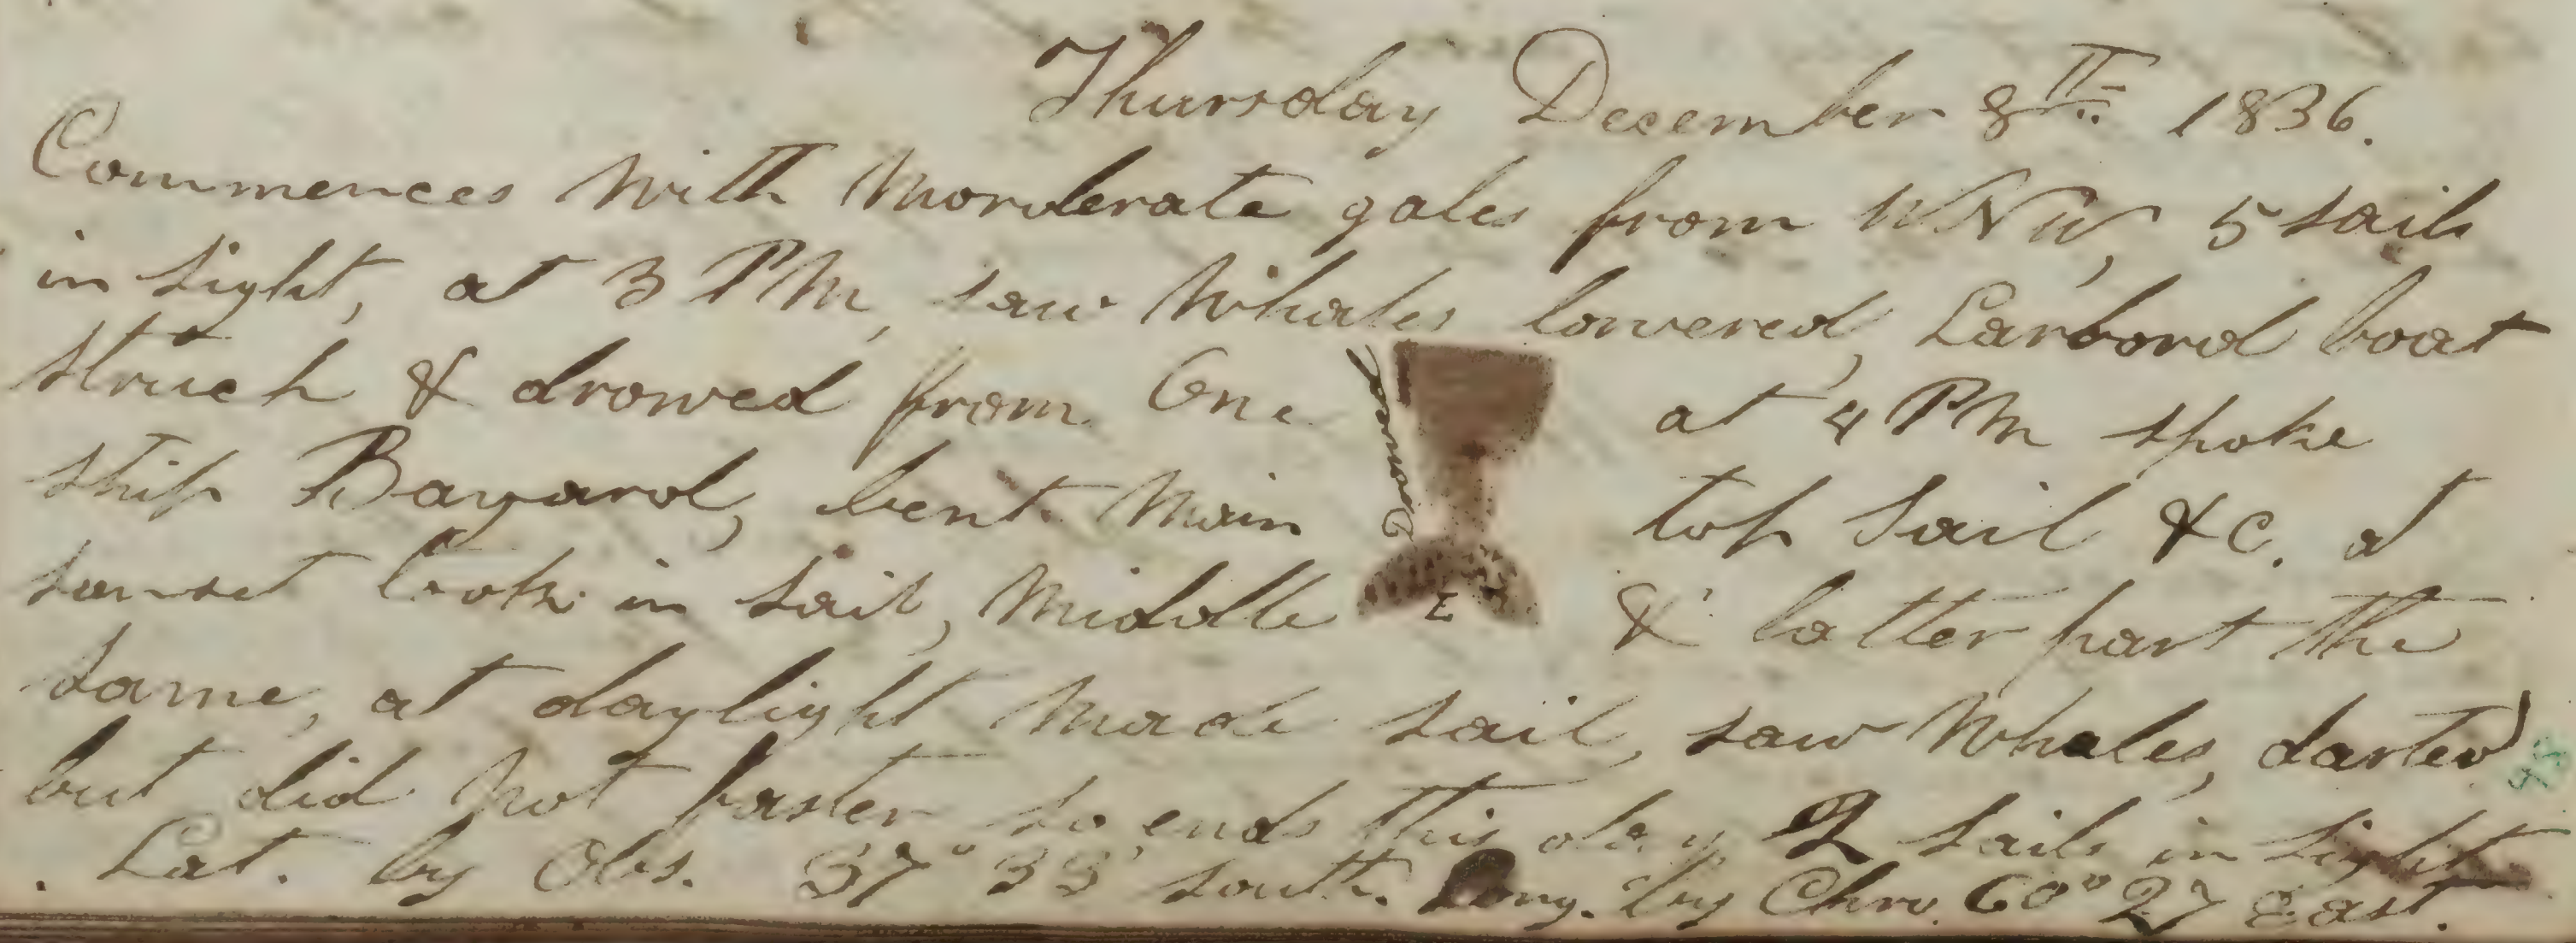 Thursday December 8th 1836.
Commences with Morderate gales from WNW, 5 sails
in sight, at 3 PM, saw Whales lowered, Larbord boat
struck & drowed from One at 4 PM spoke
ship Bayard, bent Main top sail &c. at
sunset took in sail, Middle & latter part the
same, at daylight Made sail, saw Whales, darted
but did not fasten so ends this day 2 sails in sight
Lat. by Obs. 37° 33' south. Long. by Chro. 60° 27 East.